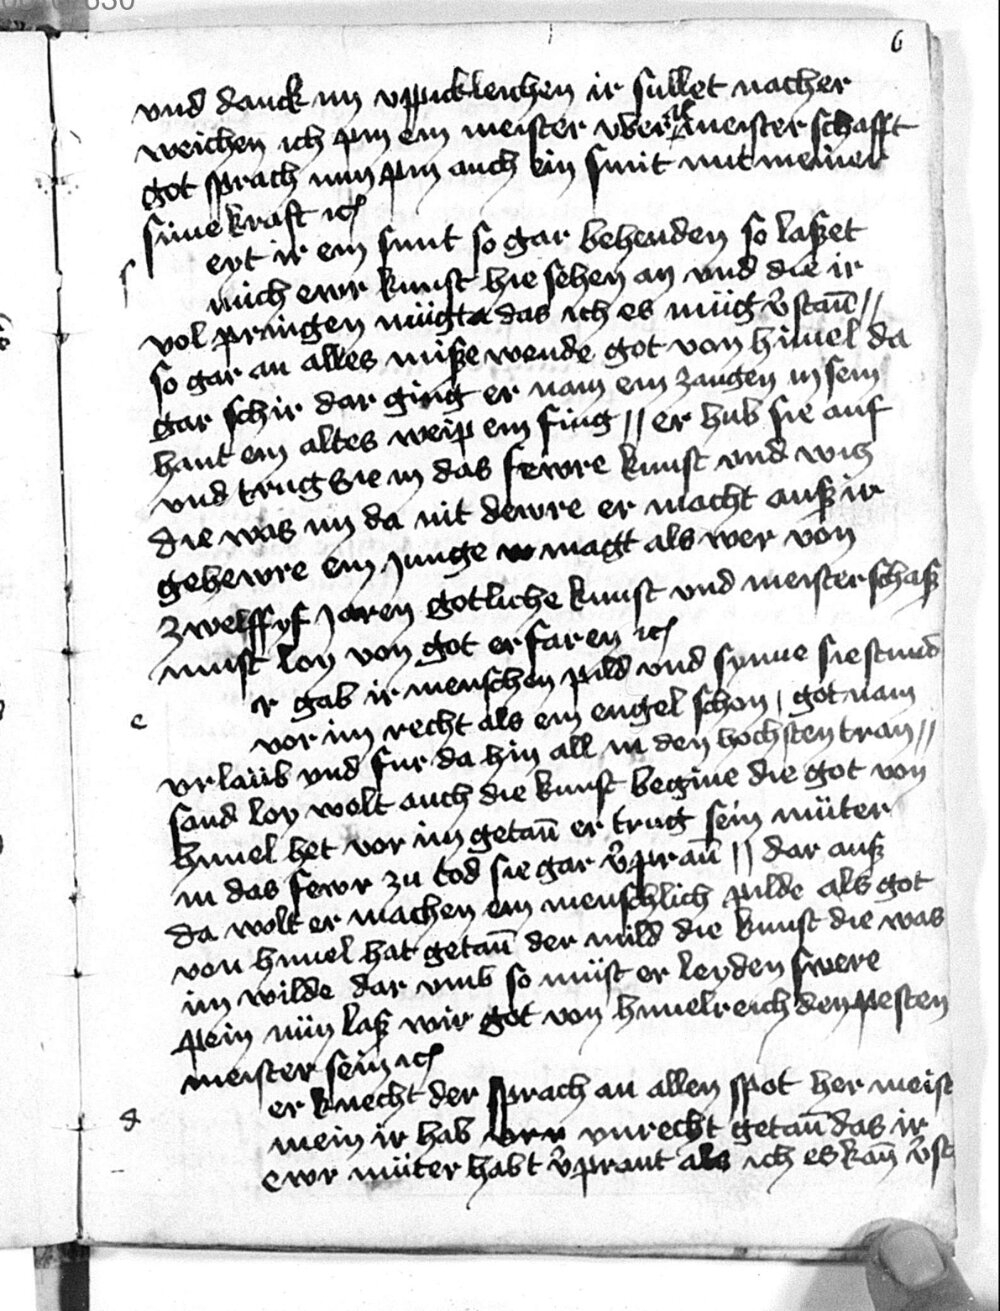 6
vnd danck im vppickleichen ir süllet nacher
weichen ich pin ein meister vber all meisterschafft
got sprach nun pin auch ein smit mit meiner
süne kraft ich
s eyt ir ein smit so gar behenden so laßet
mich ewr kunst hie sehen an vnd die ir
volpringen mügt das ich es müg v̄stan̄ //
so gar an alles mißewende got von himel da
gar schir dar ging er nam ein zangen in sein
hant ein altes weip ein fing // er hub sie auf
vnd trug sie in das fewre kunst vnd wis
die was im da nit dewre er macht auß ir
gehewre ein junge magt als wer von
zwelffyf jaren gotliche kunst vnd meisterschaft
must loy von got erfaren ich
e r gab ir menschen pild vnd synne sie stund
vor im recht als ein engel schon / got nam
vrlaüb vnd fur da hin all in den höchsten tran //
sand loy wolt auch die kunst begine die got von
himel het vor im getan̄ er trug sein müter
in das fewr zu tod sie gar v̄pran̄ // dar auß
da wolt er machen ein menschlich pilde als got
von himel hat getan̄ der mild die kunst die was
im wilde dar vmb so müst er leyden swere
pein nün laß wir got von himelreich den pesten
meister sein ich
d er knecht der sprach an allen spot her meist
mein ir hab vnrecht getan̄ das ir
ewr müter habt v̄prant als ich es kan̄ v̄st